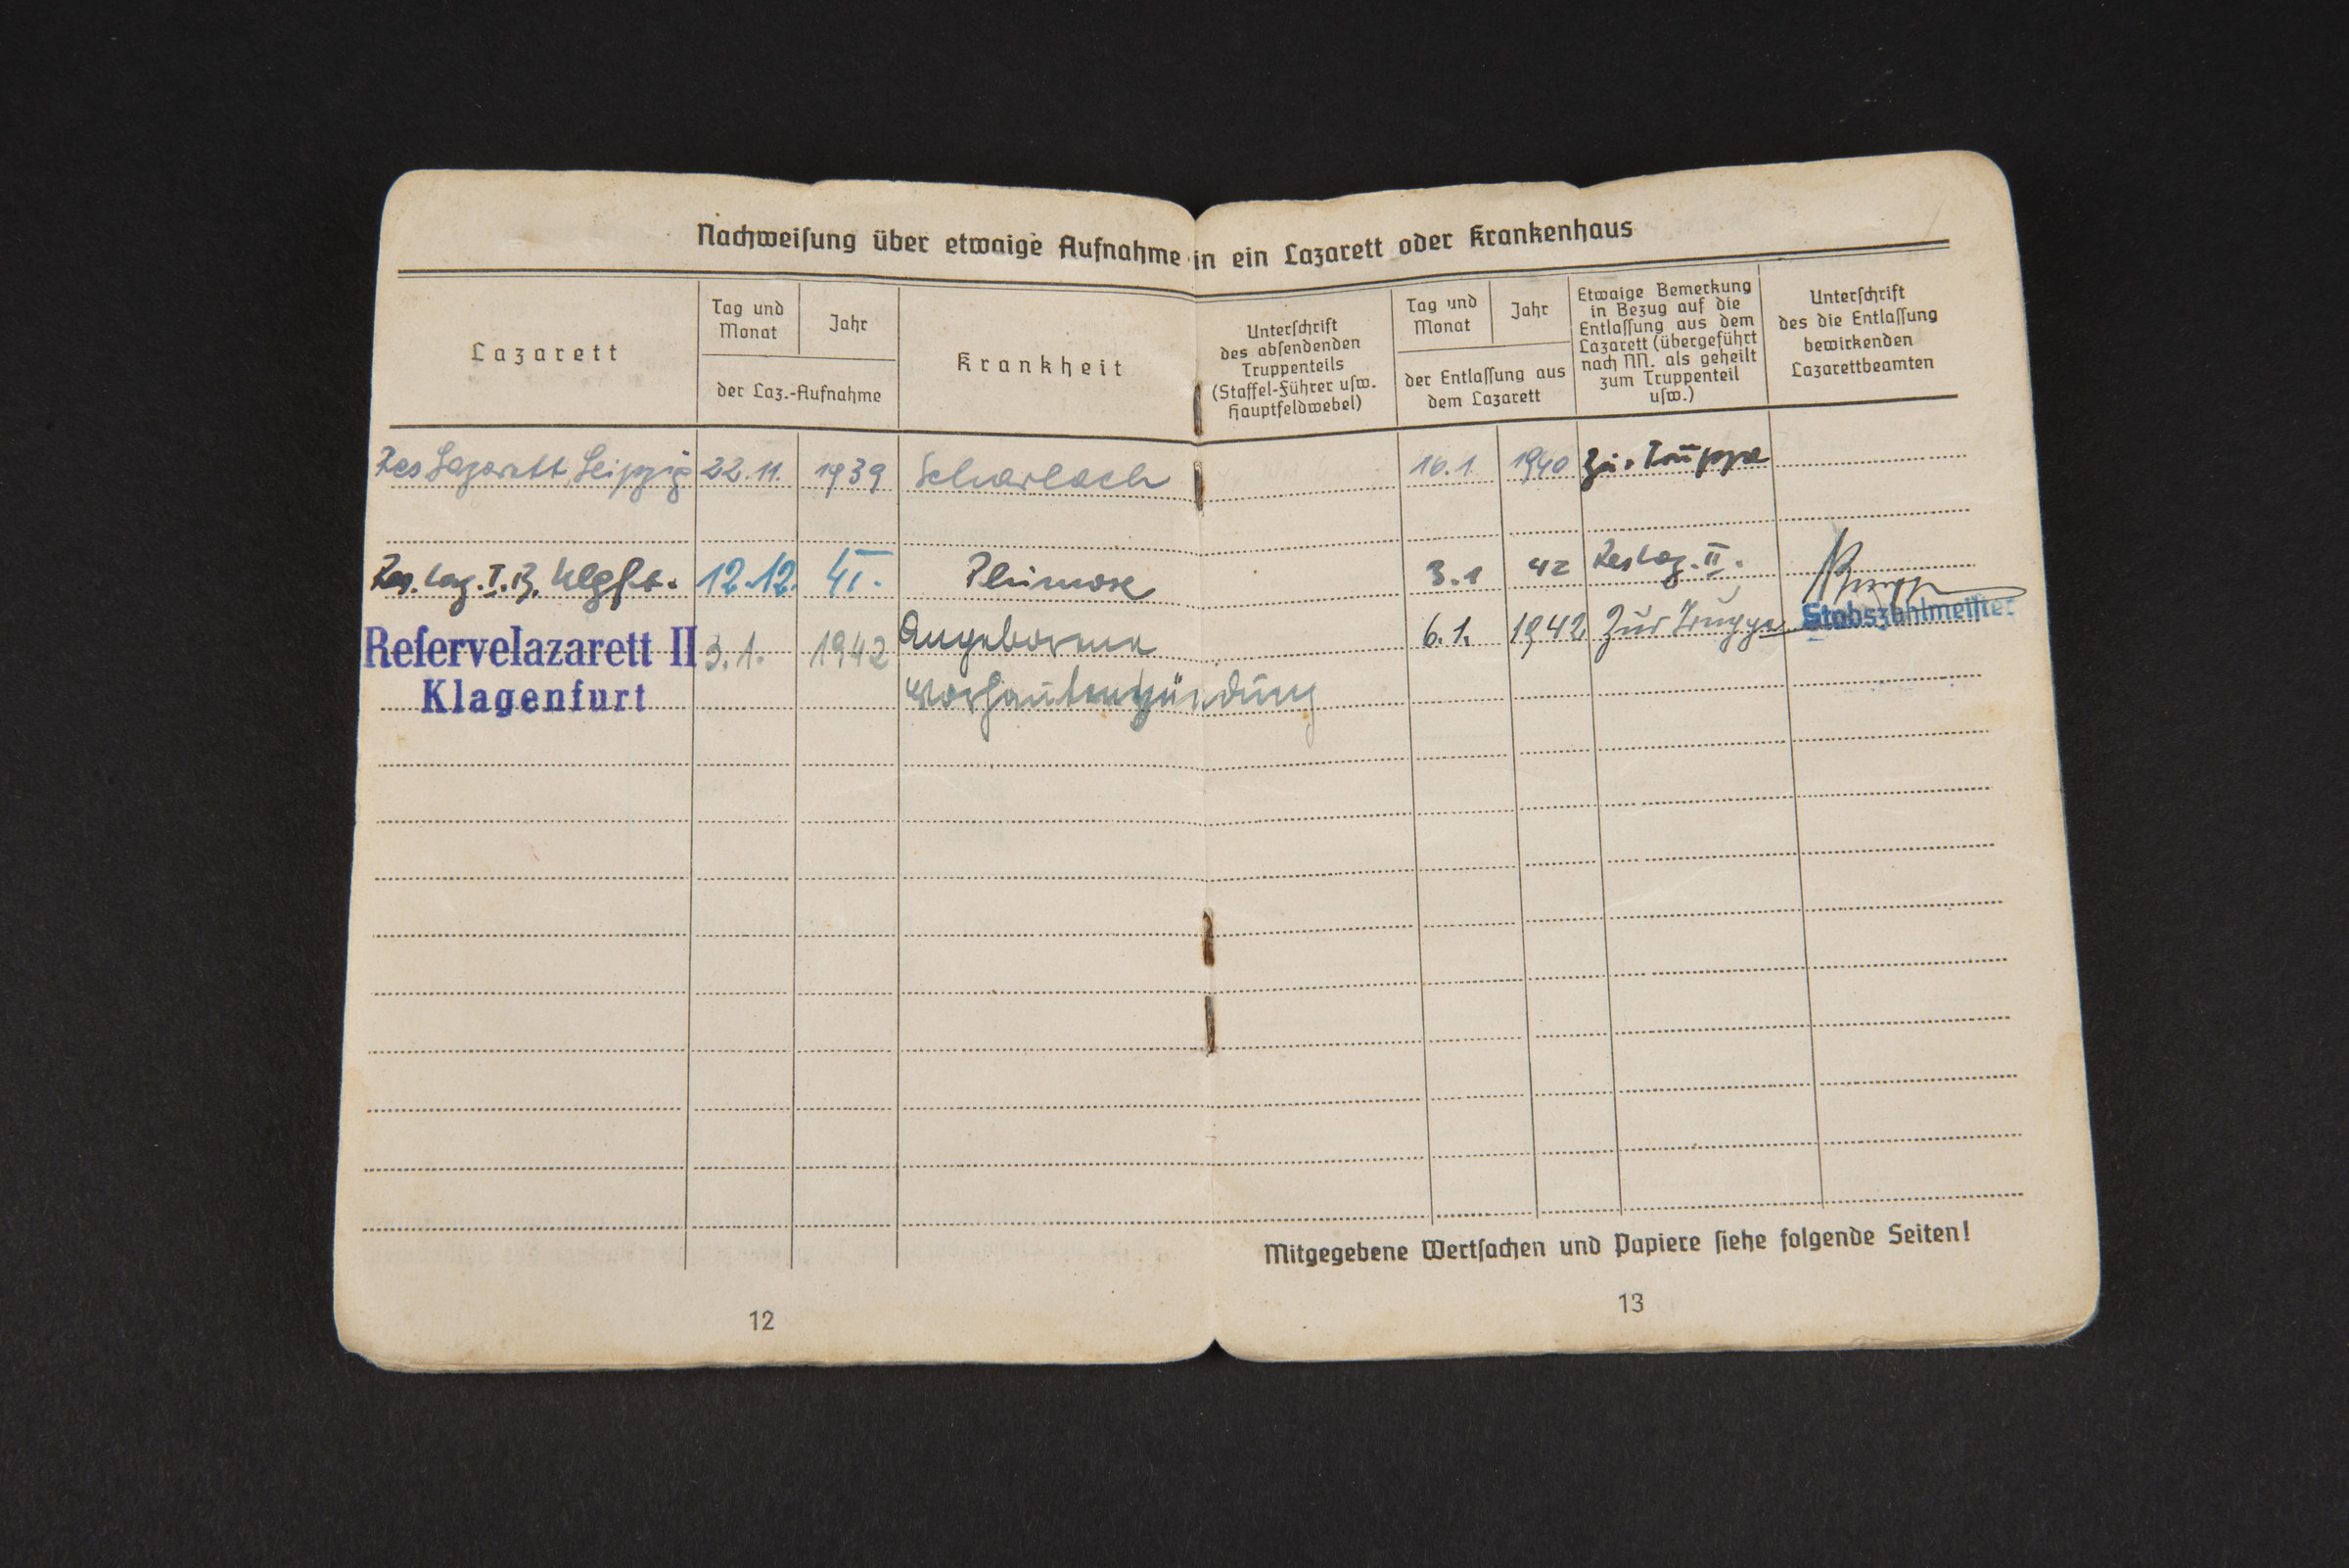 Nachweiſung über etwaige Aufnahme in ein Lazarett oder Krankenhaus
Lazarett
Tag und
Monat
Jahr
der Laz.-Aufnahme
Krankheit
Unterſchrift
des abſendenden
Truppenteils
(Staffel-Führer uſw.
Hauptfeldwebel)
Tag und
Monat
Jahr
der Entlaſſung aus
dem Lazarett
Etwaige Bemerkung
in Bezug auf die
Entlaſſung aus dem
Lazarett (übergeführt
nach NN. als geheilt
zum Truppenteil
uſw.)
Unterſchrift
des die Entlaſſung
bewirkenden
Lazarettbeamten
Res Lazarett, Leipzig 22.11. 1939 Scharlach 10.1. 1940 Zur Truppe
Res. Laz. I. B. Klgft. 12.12. 41. Phimose 3.1 42 Res Laz. II.
Reſervelazarett II 3.1. 1942 Angeborene 6.1. 1942 Zur Truppe Stabszahlmeiſter
Klagenfurt Vorhautentzündung
Mitgegebene Wertſachen und Papiere ſiehe folgende Seiten!
12
13